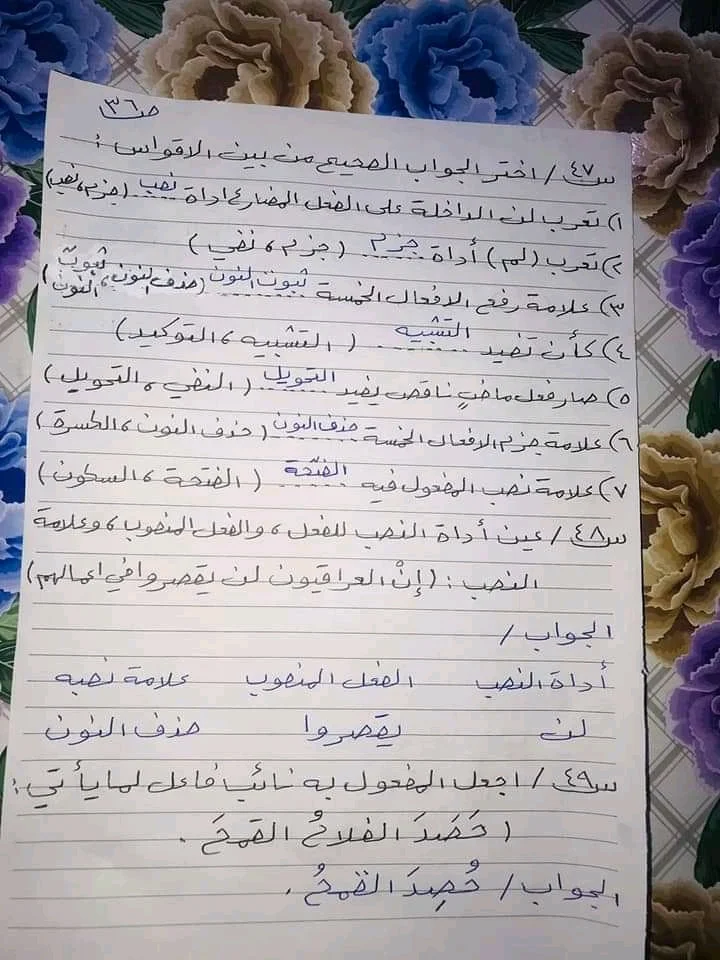 ص٣٦
س٤٧/ اختر الجواب الصحيح من بين الاقواس :
١) تعرب لن الداخلة على الفعل المضارع اداة نصب (جزم، نصب)
٢) تعرب (لم) أداة جزم (جزم، نفي)
٣) علامة رفع الافعال الخمسة ثبوت النون (حذف النون، ثبوت النون)
٤) كأن تفيد التشبيه (التشبيه، التوكيد)
٥) صار فعل ماضٍ ناقص يفيد التحويل (النفي، التحويل)
٦) علامة جزم الافعال الخمسة حذف النون (حذف النون، الكسرة)
٧) علامة نصب المفعول فيه الفتحة (الفتحة، السكون)
س٤٨/ عين أداة النصب للفعل، والفعل المنصوب، وعلامة
النصب : (إنْ العراقيون لن يقصروا في اعمالهم)
الجواب/
أداة النصب الفعل المنصوب علامة نصبه
لن يقصروا حذف النون
س٤٩/ اجعل المفعول به نائب فاعل لما يأتي :
(حَصَدَ الفلاحُ القمحَ .
الجواب/ حُصِدَ القمحُ .